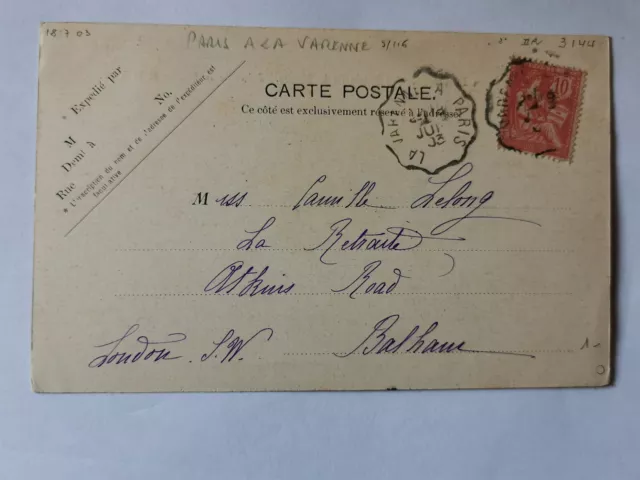 18.7.03
PARIS A LA VARENNE
3144
* Expédié par
No.
M
Demt à
Rue
* L'inscription du nom et de l'adresse de l'expéditeur est
facultative
CARTE POSTALE.
Ce côté est exclusivement réservé à l'adresse
PARIS
LA
03
10
Miss Camille Lelong
La Retraite
Atkins Road
London. S.W. Balham
1-